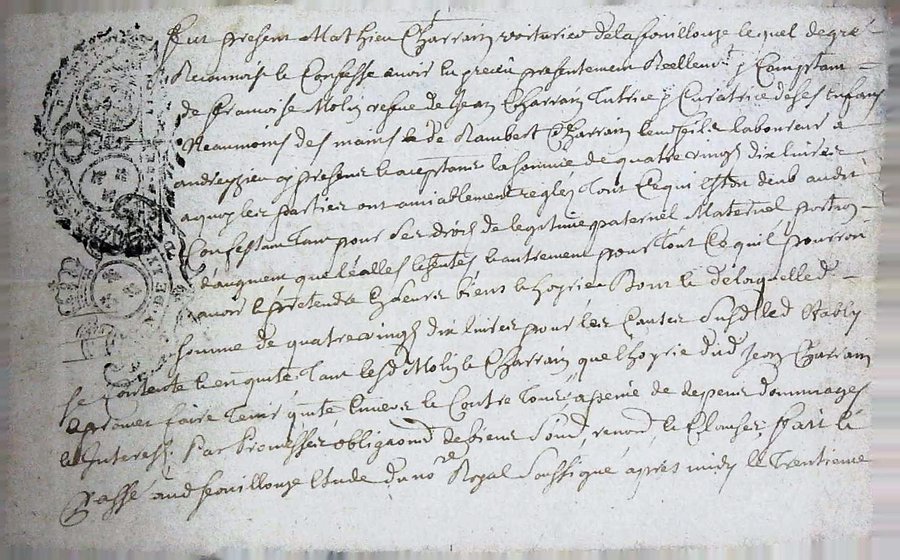 Fut present Mathieu Charrain voiturier de la fouillouze lequel de gré
Reconnoist & Confesse avoir heu & receu presentement Reellemt & Comptant
de francoise Molin vefue de Jean Charrain Tutrice & Curatrice de ses Enfans
Neaumoins des mains de Rambert Charrain laboureur a
andrezieu cy present & aceptant la somme de quatre vingt dix livres
a quoy les parties ont amiablement reglés Tout Ce qui estoit deub audit
Confessant Tant pour ses droits de legitime paternel Maternel portion
d'augment que légalles & hentes & autrement pour Tout Ce quil pourroit
avoir & pretendre Es dits biens & hoyrie de laquelle d
somme de quatre vingt dix livres pour les Causes Susd led Stably
se Contente & en quite Tant lesd Molin & Charrain que lhoyrie dud Jean Charrain
& promet faire Tenir quite Envers & Contre Tous a peine de depens dommages
& Interests Par Promesses obligaond de biens Soumd, renond, & Clauses, fait &
Passé aud fouillouze Etude du nore Royal Soussigné apres midy le Trentieme